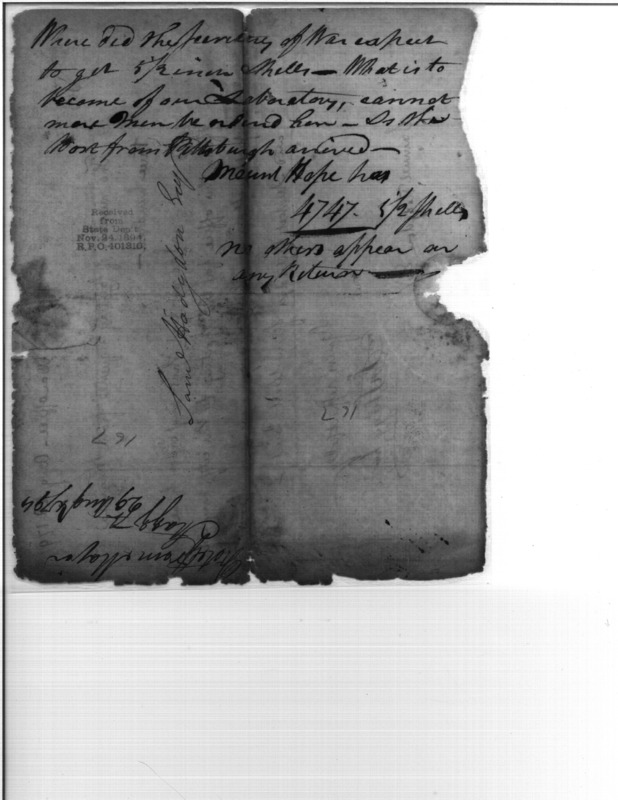 Where did the Secretary of War expect
to get 5½ inch Shells — What is to
become of our Laboratory, cannot
more Men be ordered here — Is the
Work from Pittsburgh arrived —
Mount Hope has
4747. 5½ Shells
no others appear on
any Return
Received
from
State Dep't
Nov. 24, 1894
R.P.O. 401816
Saml Hodgdon Esqr
167
167
29 Augt 1794